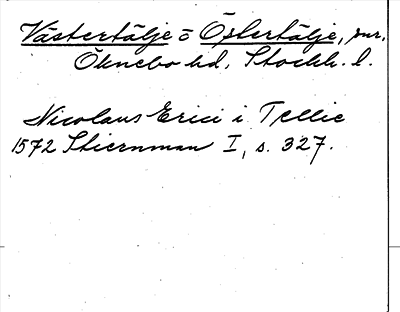 Västertälje o Östertälje, snr,
Öknebo hd, Stockh. l.
Nicolaus Erici i Tellie
1572 Stiernman I, s. 327.